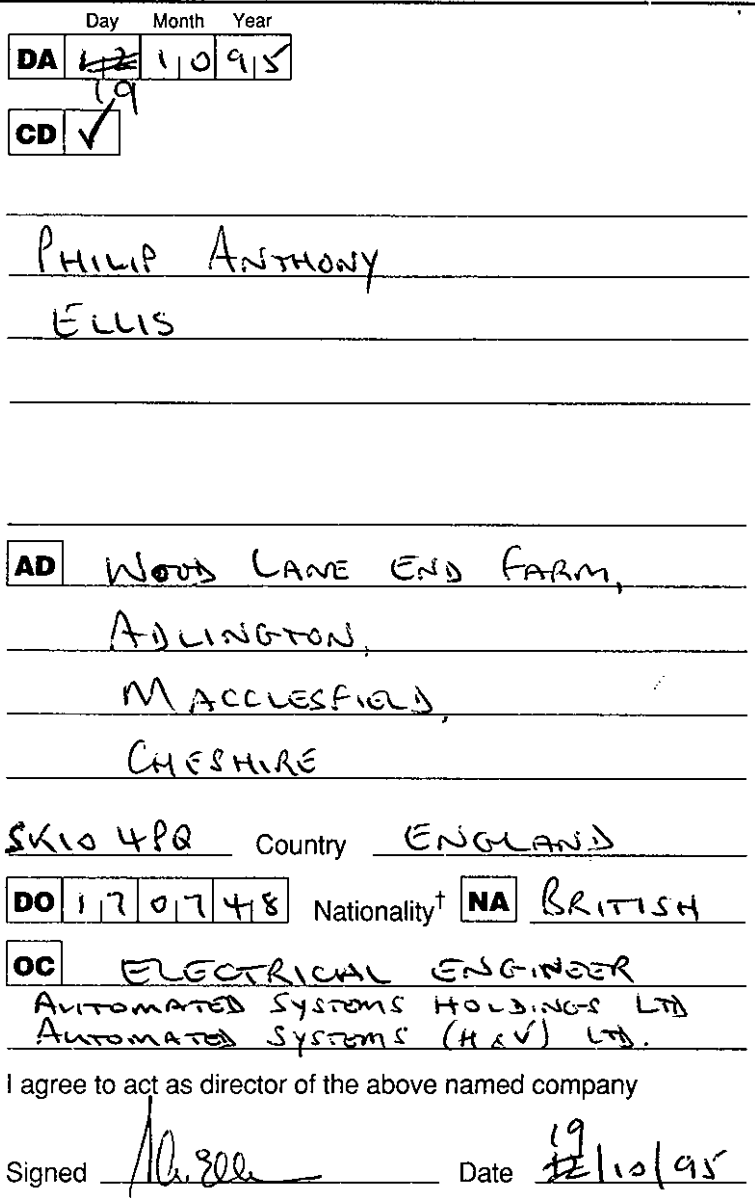 Day Month Year
DA 12 10 95
19
CD ✓
PHILIP ANTHONY
ELLIS
AD WOOD LANE END FARM,
ADLINGTON,
MACCLESFIELD,
CHESHIRE
SK10 4PQ Country ENGLAND
DO 17 07 48 Nationality† NA BRITISH
OC ELECTRICAL ENGINEER
AUTOMATED SYSTEMS HOLDINGS LTD
AUTOMATED SYSTEMS (H&V) LTD.
I agree to act as director of the above named company
19
Signed Date 12/10/95